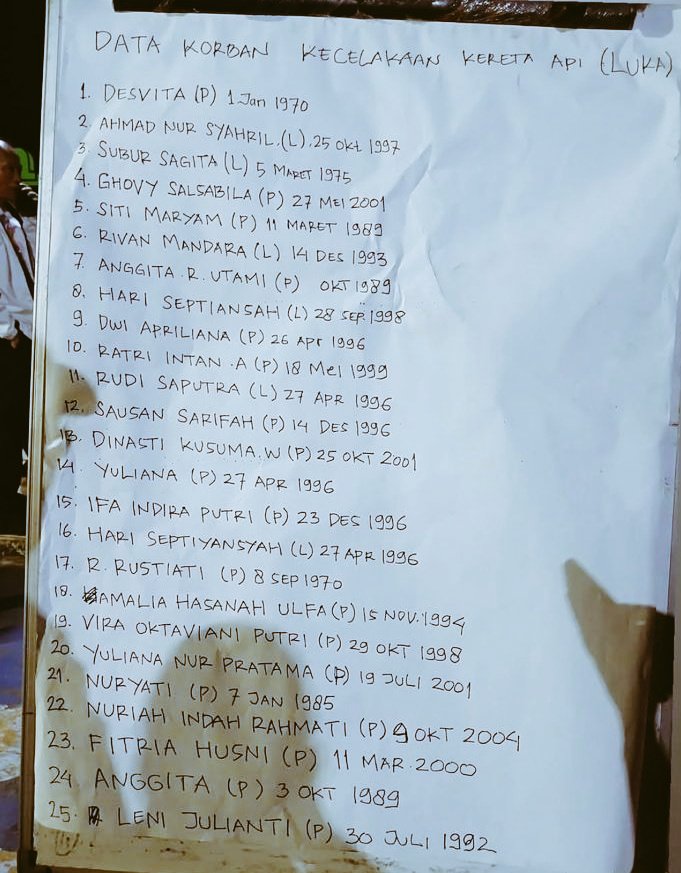 DATA KORBAN KECELAKAAN KERETA API (LUKA)
1. DESVITA (P) 1 Jan 1970
2. AHMAD NUR SYAHRIL. (L). 25 Okt 1997
3. SUBUR SAGITA (L) 5 MARET 1975
4. GHOVY SALSABILA (P) 27 MEI 2001
5. SITI MARYAM (P) 11 MARET 1989
6. RIVAN MANDARA (L) 14 DES 1993
7. ANGGITA. R. UTAMI (P) OKT 1989
8. HARI SEPTIANSAH (L) 28 SEP. 1998
9. DWI APRILIANA (P) 26 Apr 1996
10. RATRI INTAN .A (P) 18 Mei 1999
11. RUDI SAPUTRA (L) 27 APR 1996
12. SAUSAN SARIFAH (P) 14 DES 1996
13. DINASTI KUSUMA.W (P) 25 OKT 2001
14. YULIANA (P) 27 APR 1996
15. IFA INDIRA PUTRI (P) 23 DES 1996
16. HARI SEPTIYANSYAH (L) 27 APR 1996
17. R. RUSTIATI (P) 8 SEP 1970
18. AMALIA HASANAH ULFA (P) 15 NOV. 1994
19. VIRA OKTAVIANI PUTRI (P) 29 OKT 1998
20. YULIANA NUR PRATAMA (P) 19 JULI 2001
21. NURYATI (P) 7 JAN 1985
22. NURIAH INDAH RAHMATI (P) 9 OKT 2004
23. FITRIA HUSNI (P) 11 MAR. 2000
24. ANGGITA (P) 3 OKT 1989
25. LENI JULIANTI (P) 30 JULI 1992